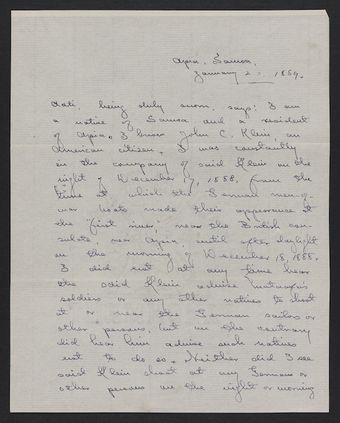 Apia, Samoa,
January 2 , 1889.
dati, being duly sworn, says: I am
a native of Samoa and a resident
of Apia. I know John C. Klein, an
American citizen. I was constantly
in the company of said Klein on the
night of December 17, 1888, from the
time at which the German men-of-
war boats made their appearance at
the "first river," near the British con-
sulate, near Apia, until after daylight
on the morning of December 18, 1888.
I did not at any time hear
the said Klein advise Mataafa's
soldiers or any other natives to shoot
at or near the German sailors or
other persons, but on the contrary
did hear him advise such natives
not to do so. Neither did I see
said Klein shoot at any Germans or
other persons on the night or morning